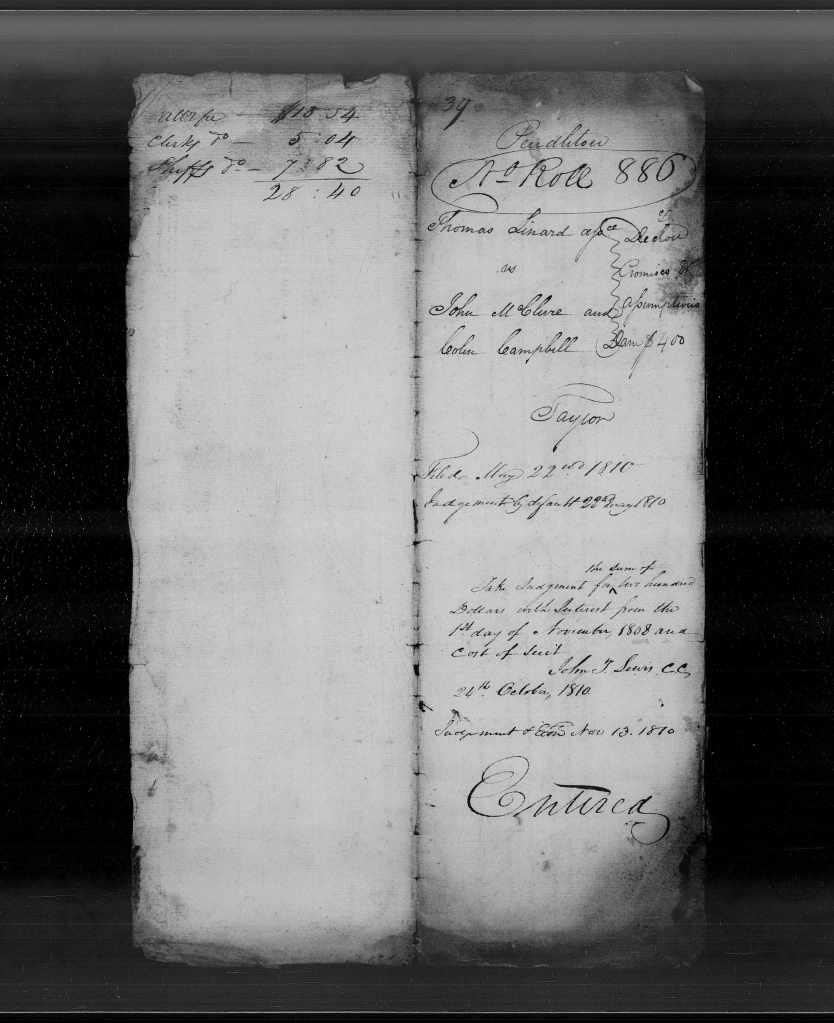 Attys fee — $15 . 54
Clerks Do — 5 : 04
Shffs Do — 7 : 82
28 : 40
39
Pendleton
No Roll 886
Thomas Linard assee
vs
John McClure and
Colin Campbill
Decl on
Promises &
assumptions
Dam $400
Taylor
Filed May 22nd 1810
Judgement by default 22d May 1810
the sum of
Take Judgement for two hundred
Dollars with Interest from the
1st day of November, 1808 and
Cost of Suit
John T. Lewis C.C.
24th October, 1810
Judgement & Exon Nov 13. 1810
Entered